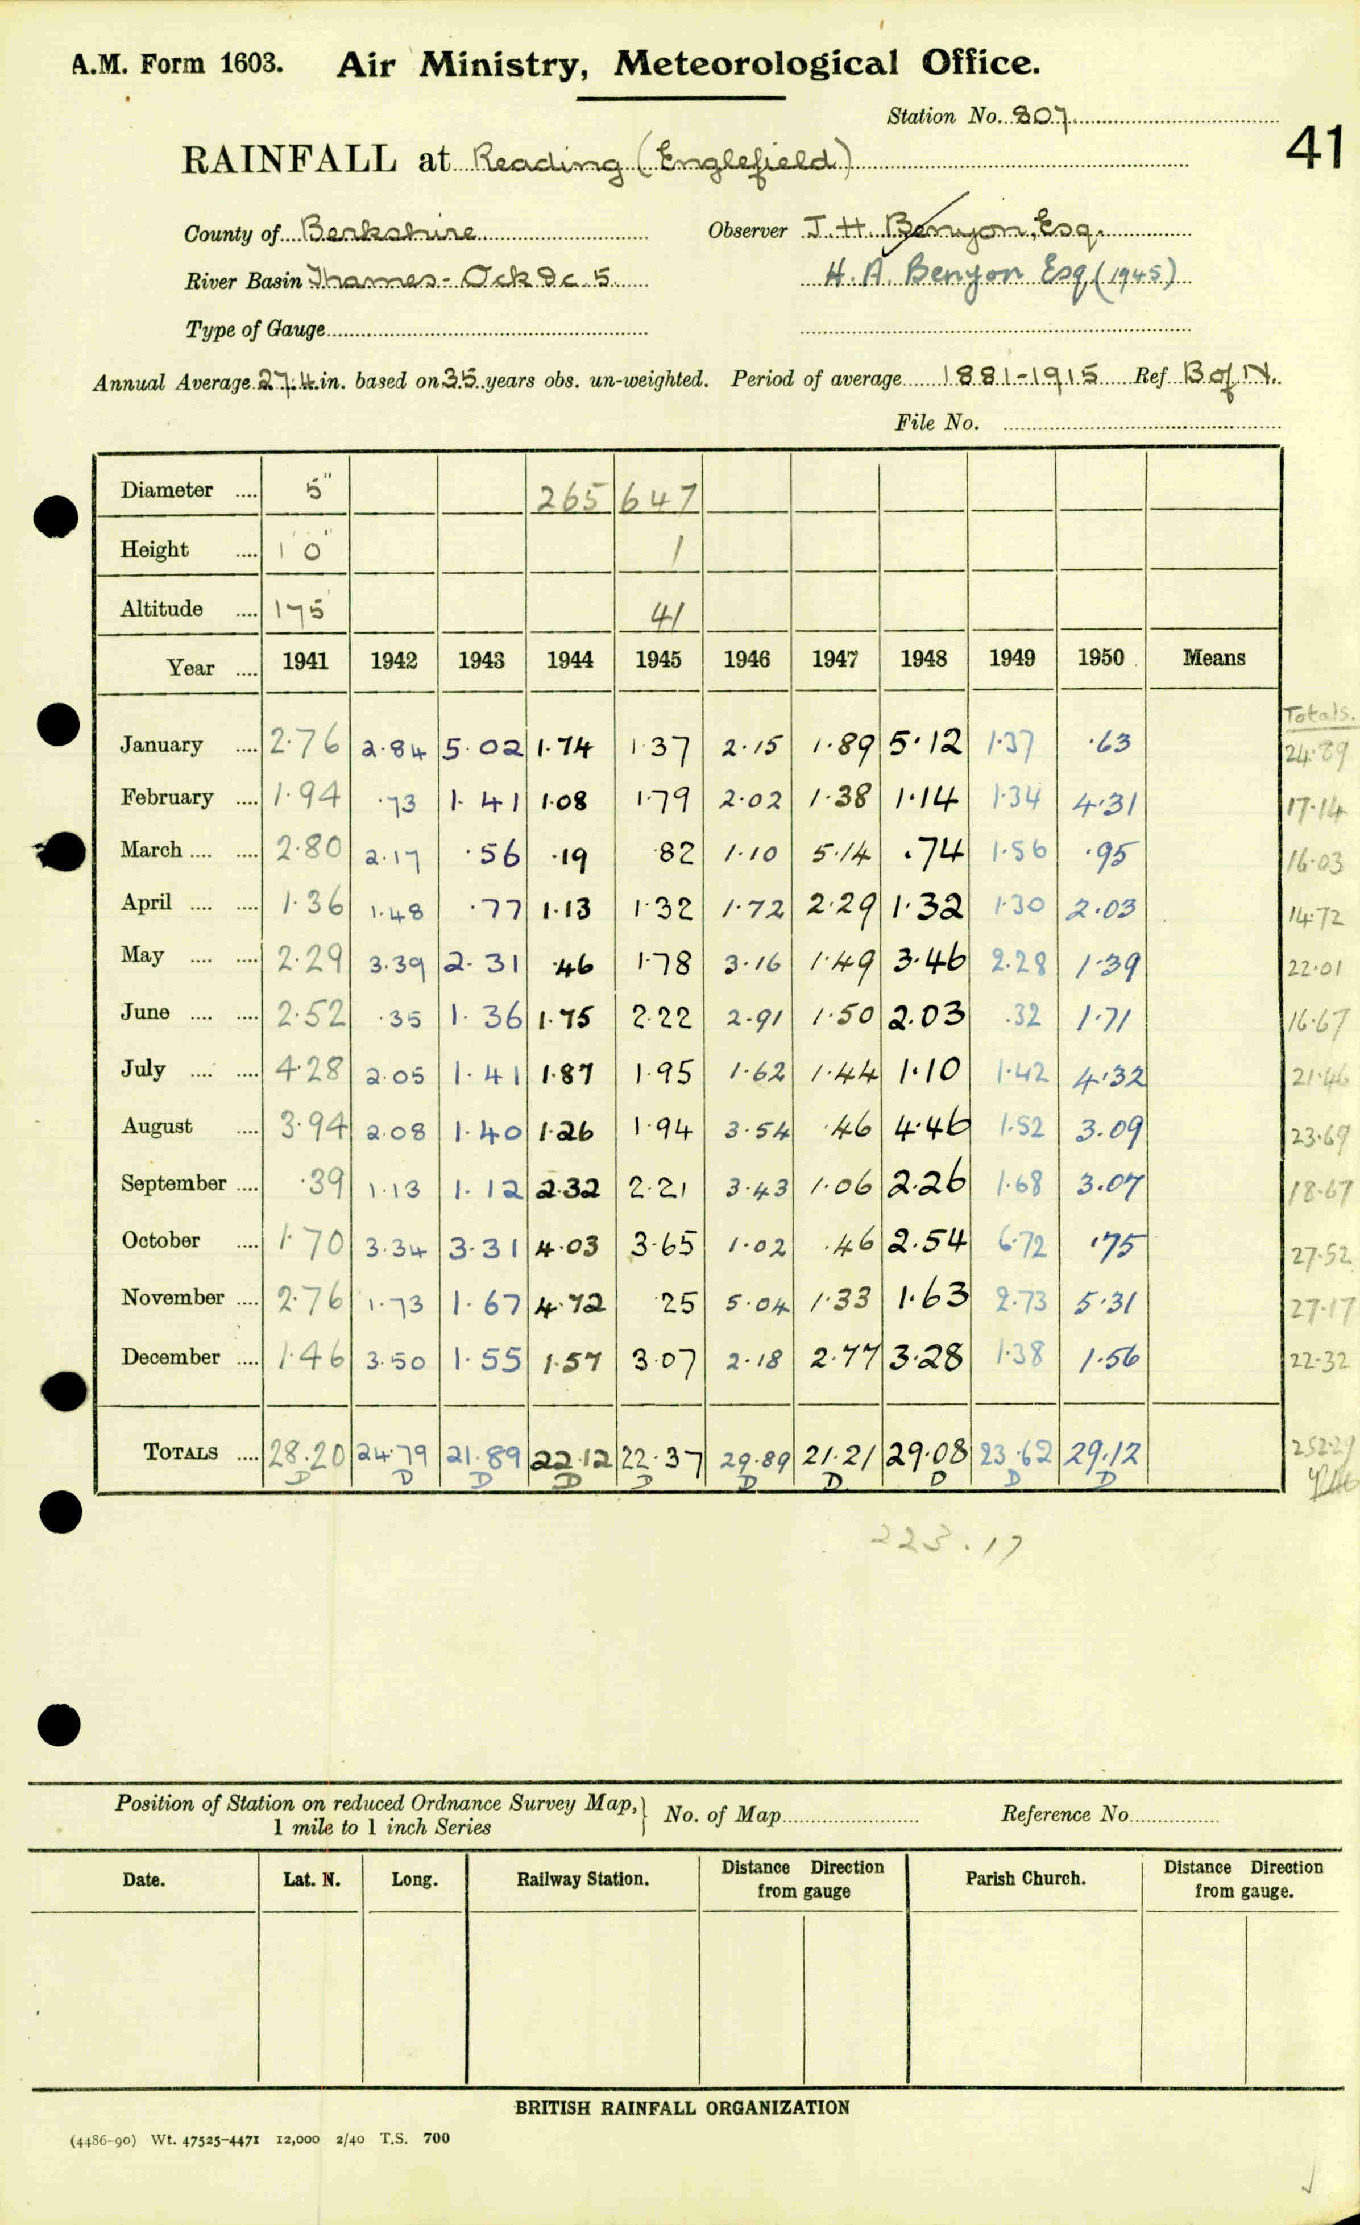 A.M. Form 1603. Air Ministry, Meteorological Office.
Station No. 807
41
RAINFALL at Reading (Englefield)
County of Berkshire Observer J. H. Benyon, Esq.
River Basin Thames - Ock &c. 5 H. A. Benyon Esq (1945)
Type of Gauge
Annual Average 27.4 in. based on 35 years obs. un-weighted. Period of average 1881-1915 Ref B of N.
File No.
Diameter .... 5" 265 647
Height .... 1' 0" 1
Altitude .... 175' 41
Year .... 1941 1942 1943 1944 1945 1946 1947 1948 1949 1950 Means
Totals.
January .... 2.76 2.84 5.02 1.74 1.37 2.15 1.89 5.12 1.37 .63 24.89
February .... 1.94 .73 1.41 1.08 1.79 2.02 1.38 1.14 1.34 4.31 17.14
March .... .... 2.80 2.17 .56 .19 .82 1.10 5.14 .74 1.56 .95 16.03
April .... .... 1.36 1.48 .77 1.13 1.32 1.72 2.29 1.32 1.30 2.03 14.72
May .... .... 2.29 3.39 2.31 .46 1.78 3.16 1.49 3.46 2.28 1.39 22.01
June .... .... 2.52 .35 1.36 1.75 2.22 2.91 1.50 2.03 .32 1.71 16.67
July .... .... 4.28 2.05 1.41 1.87 1.95 1.62 1.44 1.10 1.42 4.32 21.46
August .... 3.94 2.08 1.40 1.26 1.94 3.54 .46 4.46 1.52 3.09 23.69
September .... .39 1.13 1.12 2.32 2.21 3.43 1.06 2.26 1.68 3.07 18.67
October .... 1.70 3.34 3.31 4.03 3.65 1.02 .46 2.54 6.72 .75 27.52
November .... 2.76 1.73 1.67 4.72 .25 5.04 1.33 1.63 2.73 5.31 27.17
December .... 1.46 3.50 1.55 1.57 3.07 2.18 2.77 3.28 1.38 1.56 22.32
TOTALS .... 28.20 24.79 21.89 22.12 22.37 29.89 21.21 29.08 23.62 29.12 252.29
D D D D D D D D D D
223.17
Position of Station on reduced Ordnance Survey Map, } No. of Map Reference No
1 mile to 1 inch Series
Date. Lat. N. Long. Railway Station. Distance from gauge Direction Parish Church. Distance from gauge. Direction
BRITISH RAINFALL ORGANIZATION
(4486-90) Wt. 47525-4471 12,000 2/40 T.S. 700